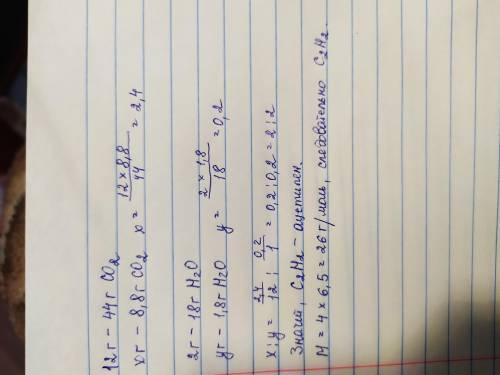 12г - 44г CO2
хг - 8,8г CO2 x = 12 × 8,8 / 44 = 2,4
2г - 18г H2O
уг - 1,8г H2O y = 2 × 1,8 / 18 = 0,2
x : y = 2,4 / 12 : 0,2 / 1 = 0,2 : 0,2 = 2 : 2
Значит, C2H2 - ацетилен.
M = 4 × 6,5 = 26 г/моль, следовательно C2H2.